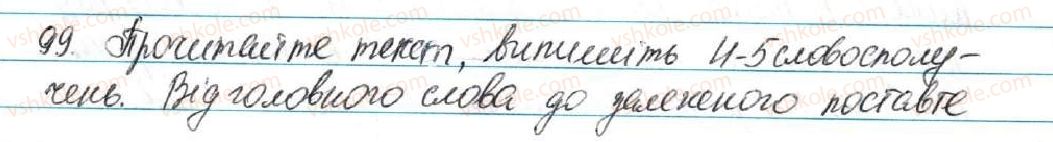 99. Прочитайте текст, випишіть 4-5 словосполу-
чень. Від головного слова до залежного поставте